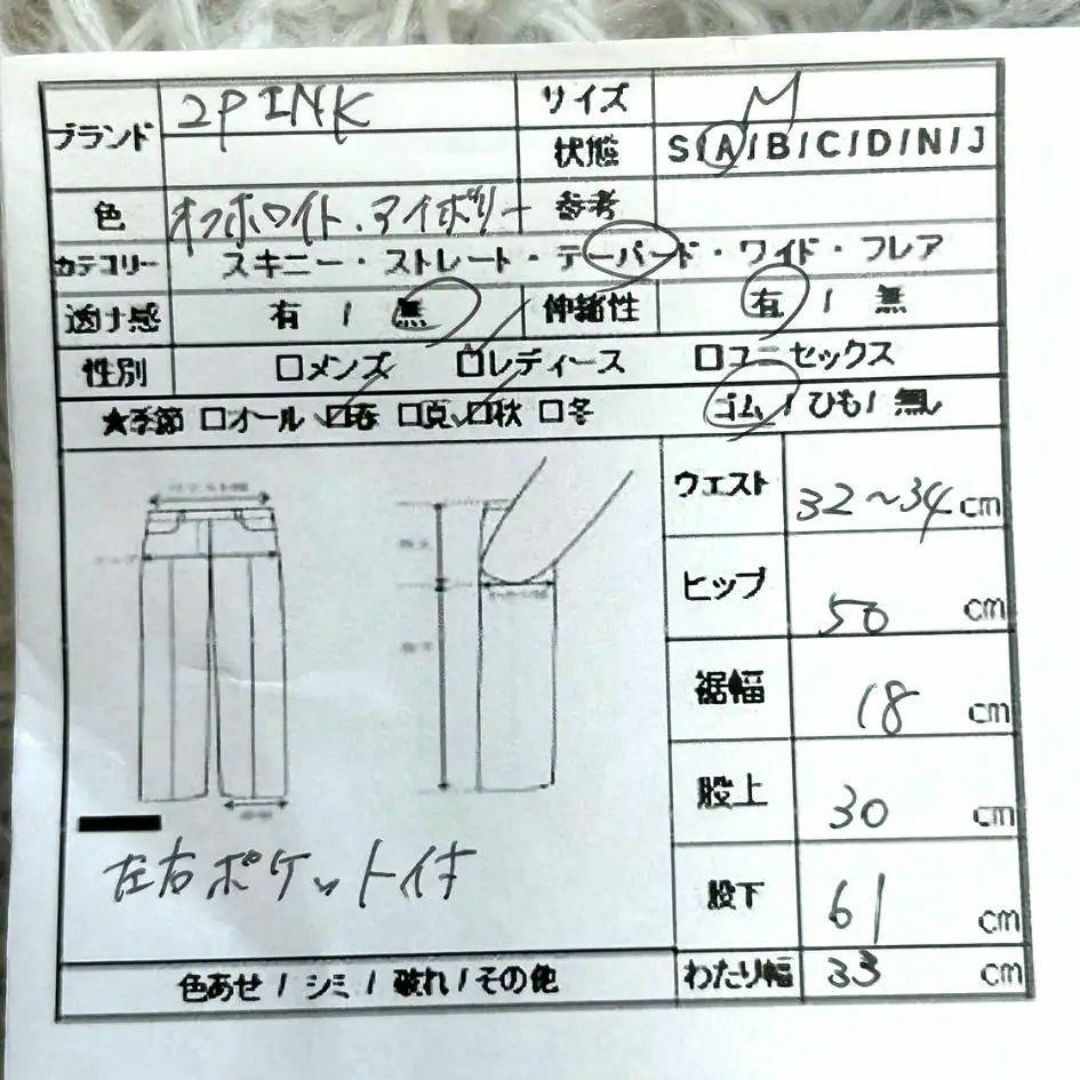 ブランド 2PINK サイズ M
状態 S/A/B/C/D/N/J
色 オフホワイト.アイボリー 参考
カテゴリー スキニー・ストレート・テーパード・ワイド・フレア
透け感 有 / 無 伸縮性 有 / 無
性別 □メンズ □レディース □ユニセックス
★季節 □オール □春 □夏 □秋 □冬 ゴム / ひも / 無し
ウエスト 32～34 cm
ヒップ 50 cm
裾幅 18 cm
股上 30 cm
股下 61 cm
左右ポケット付
わたり幅 33 cm
色あせ / シミ / 破れ / その他